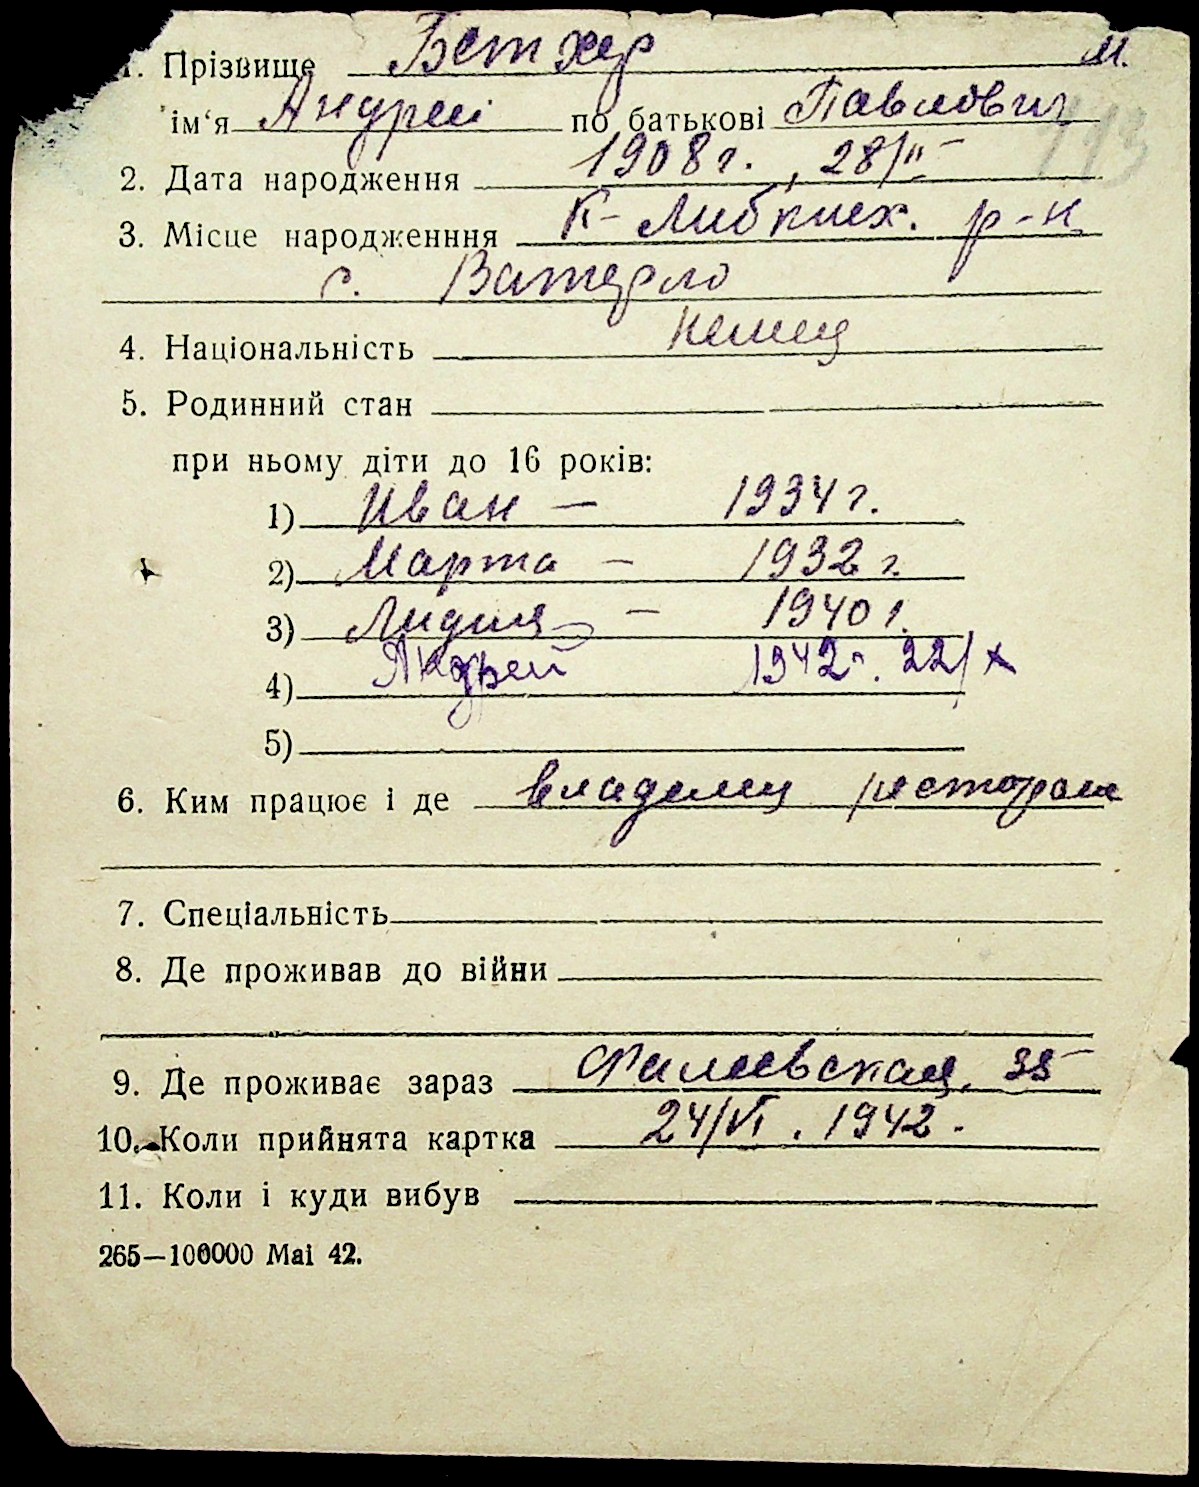 1. Прізвище Бетхер м.
ім'я Андрей по батькові Павлович
2. Дата народження 1908 г., 28/II
3. Місце народженння К-Либкнех. р-н
с. Ватерло
4. Національність немец
5. Родинний стан
при ньому діти до 16 років:
1) Иван — 1934 г.
2) Марта — 1932 г.
3) Лидия — 1940 г.
4) Андрей 1942 г. 22/X
5)
6. Ким працює і де владелец ресторана
7. Спеціальність
8. Де проживав до війни
9. Де проживає зараз Фалеевская, 35
10. Коли прийнята картка 24/VI. 1942.
11. Коли і куди вибув
265—100000 Mai 42.